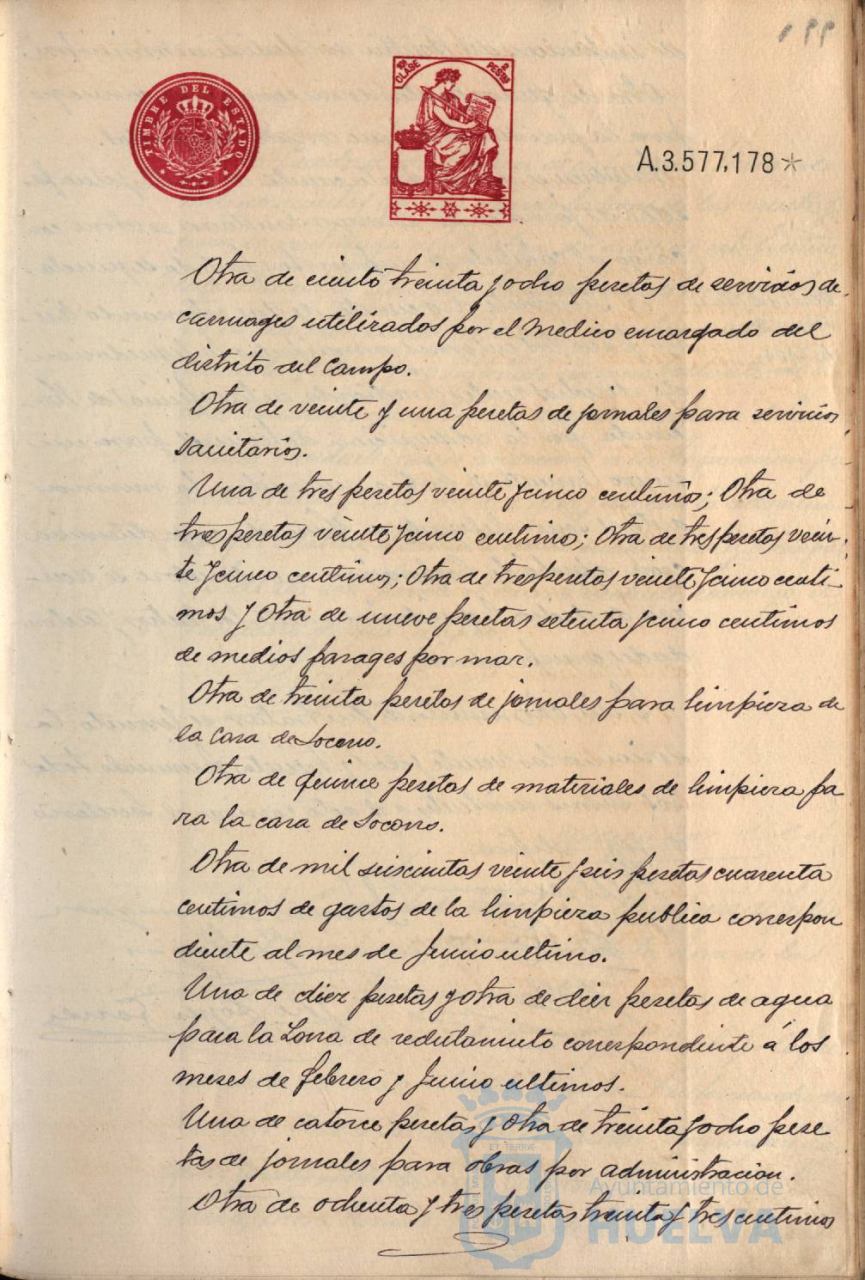 199
TIMBRE DEL ESTADO
10ª CLASE
2 PESTAS
A.3.577,178*
Otra de ciento treinta y ocho pesetas de servicios de
carruages utilizados por el Medico encargado del
distrito del Campo.
Otra de veinte y una pesetas de jornales para servicios
sanitarios.
Una de tres pesetas veinte y cinco centimos; Otra de
tres pesetas veinte y cinco centimos; Otra de tres pesetas vein-
te y cinco centimos; Otra de tres pesetas veinte y cinco centi-
mos y Otra de nueve pesetas setenta y cinco centimos
de medios parages por mar.
Otra de treinta pesetas de jornales para limpieza de
la casa de Socorro.
Otra de quince pesetas de materiales de limpieza pa
ra la casa de Socorro.
Otra de mil seiscientas veinte y seis pesetas cuarenta
centimos de gastos de la limpieza publica correspon
diente al mes de Junio ultimo.
Una de diez pesetas y otra de diez pesetas de agua
para la Zona de reclutamiento correspondiente á los
meses de febrero y Junio ultimos.
Una de catorce pesetas y otra de treinta y ocho pese
tas de jornales para obras por administracion.
Otra de ochenta y tres pesetas treinta y tres centimos
Ayuntamiento de
HUELVA